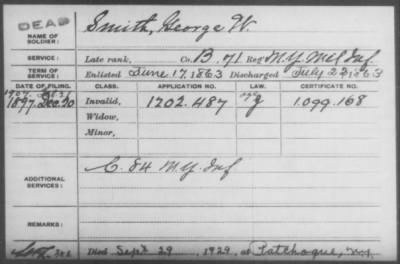 DEAD
NAME OF SOLDIER: Smith, George W.
SERVICE: Late rank, Co. B. 71 Reg't N.Y. Mil Inf.
TERM OF SERVICE: Enlisted June 17, 1863 Discharged July 22 1863
DATE OF FILING. CLASS. APPLICATION NO. LAW. CERTIFICATE NO.
1907
1897. Dec. 20 Invalid, 1202.487 g 1.099.168
Widow,
Minor,
ADDITIONAL SERVICES: C. 84 N.Y. Inf
REMARKS:
Died Sept 29, 1929, at Patchogue, N.Y.